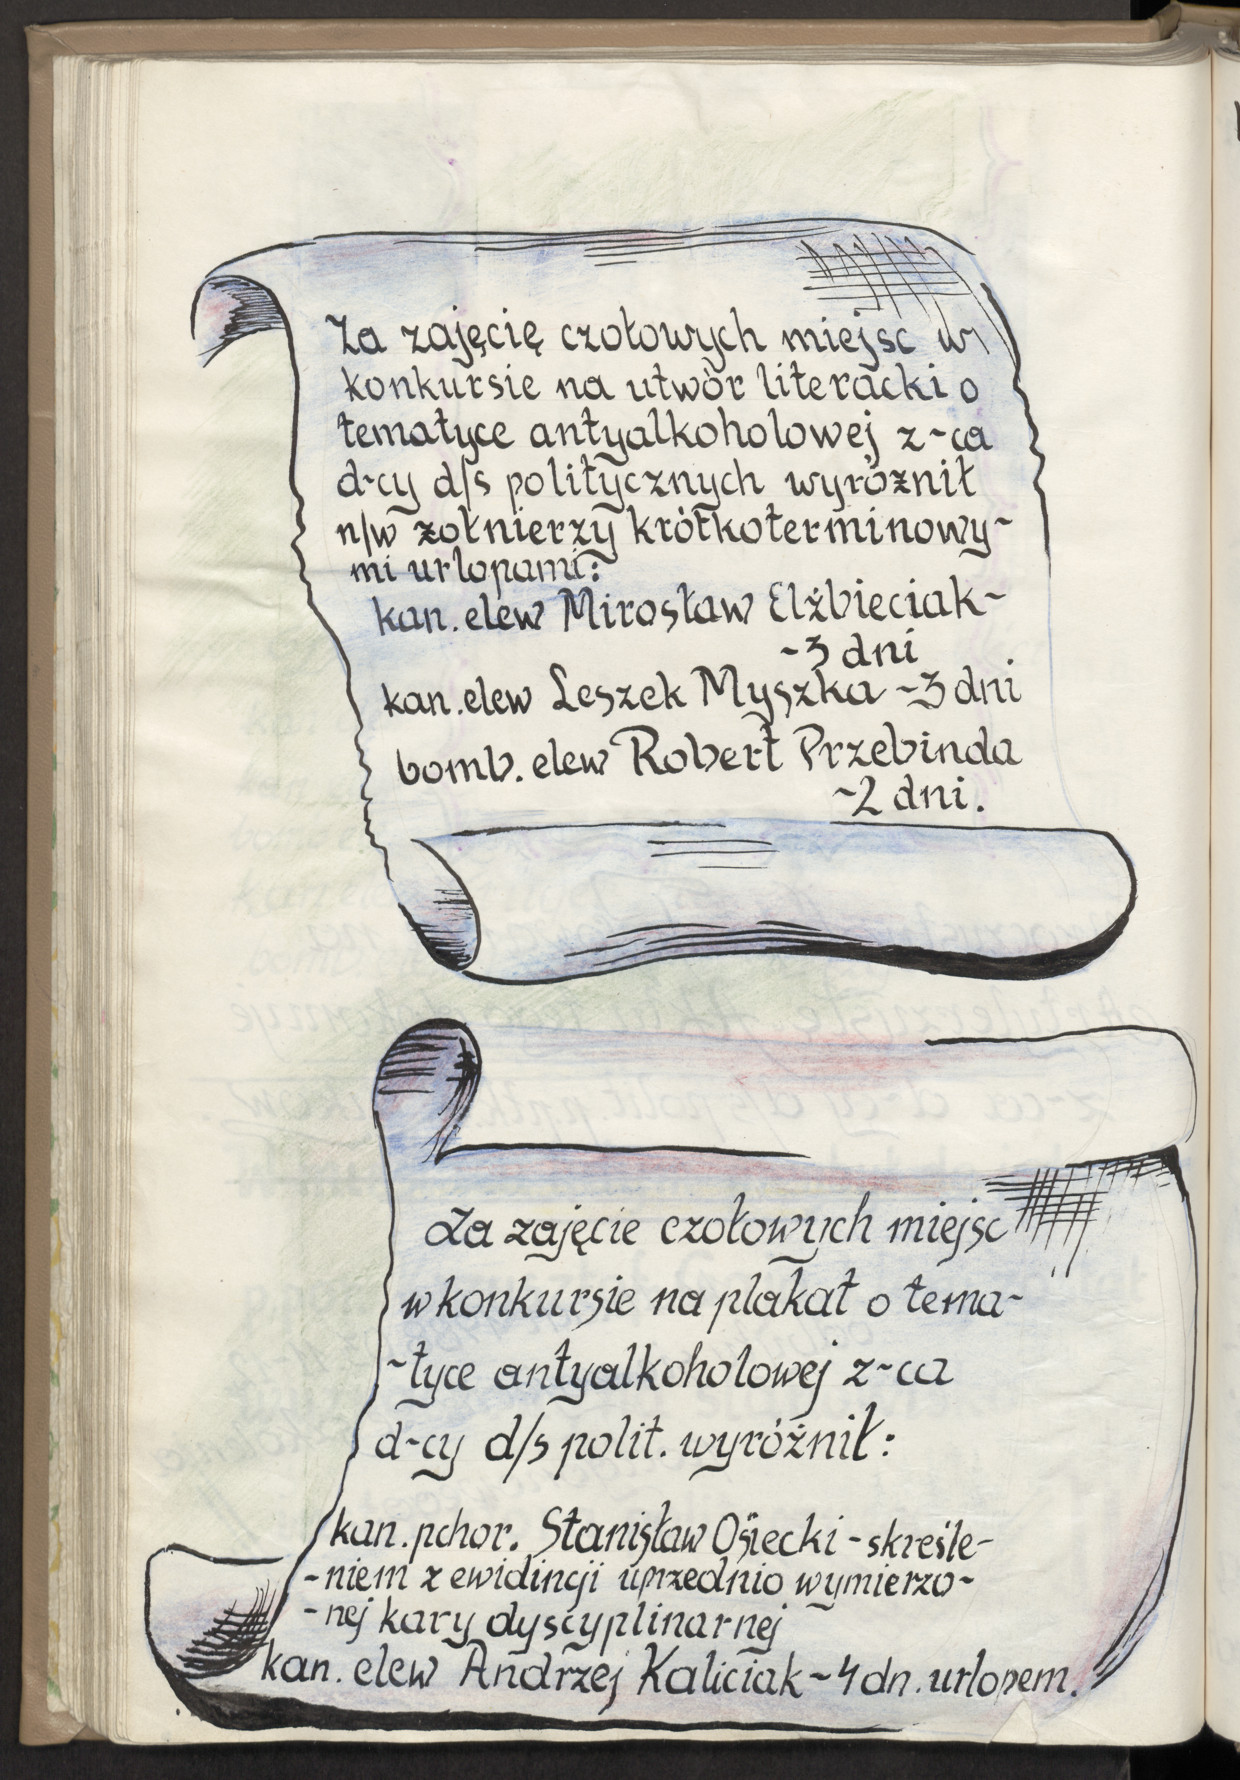 Za zajęcię czołowych miejsc w
konkursie na utwór literacki o
tematyce antyalkoholowej z-ca
d-cy d/s politycznych wyróżnił
n/w żołnierzy krótkoterminowy-
mi urlopami:
kan. elew Mirosław Elżbieciak-
-3 dni
kan. elew Leszek Myszka -3 dni
bomb. elew Robert Przebinda
-2 dni.
Za zajęcie czołowych miejsc
w konkursie na plakat o tema-
-tyce antyalkoholowej z-ca
d-cy d/s polit. wyróżnił:
kan. pchor. Stanisław Osiecki - skreśle-
-niem z ewidincji uprzednio wymierzo-
-nej kary dyscyplinarnej
kan. elew Andrzej Kaliciak - 4 dn. urlopem.